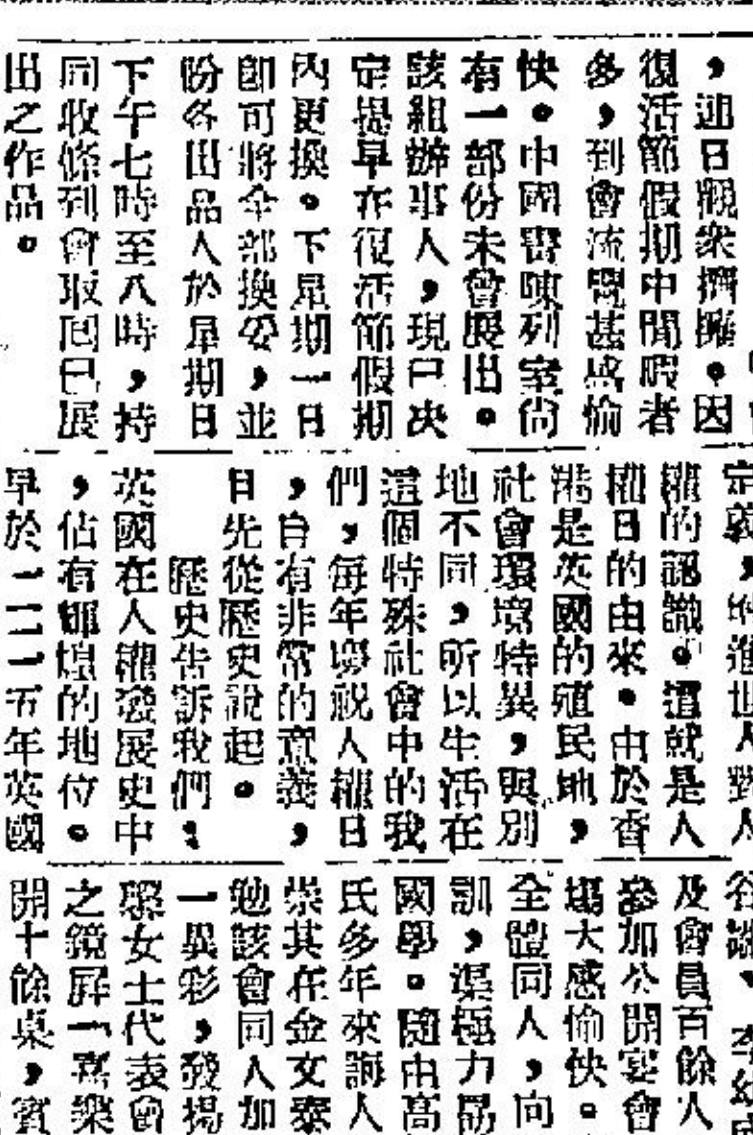 ，連日觀衆擠擁。因
復活節假期中閒暇者
多，到會流覽甚爲愉
快。中國畫陳列室尙
有一部份未曾展出。
該組辦事人，現已决
定提早在復活節假期
內更換。下星期一日
卽可將全部換妥，並
盼各出品人於星期日
下午七時至八時，持
同收條到會取回已展
出之作品。
權的認識。這就是人
權日的由來。由於香
港是英國的殖民地，
社會環境特異，與別
地不同，所以生活在
這個特殊社會中的我
們，每年慶祝人權日
，自有非常的意義，
目先從歷史說起。
歷史告訴我們：
英國在人權發展史中
，佔有輝煌的地位。
早於一二一五年英國
及會員百餘人
參加公開宴會
場大感愉快。
全體同人，向
訓，渠極力勗
國學。隨由高
氏多年來誨人
崇其在金文泰
勉該會同人加
一異彩，發揚
女士代表會
之鏡屛一喜樂
開十餘桌，賓